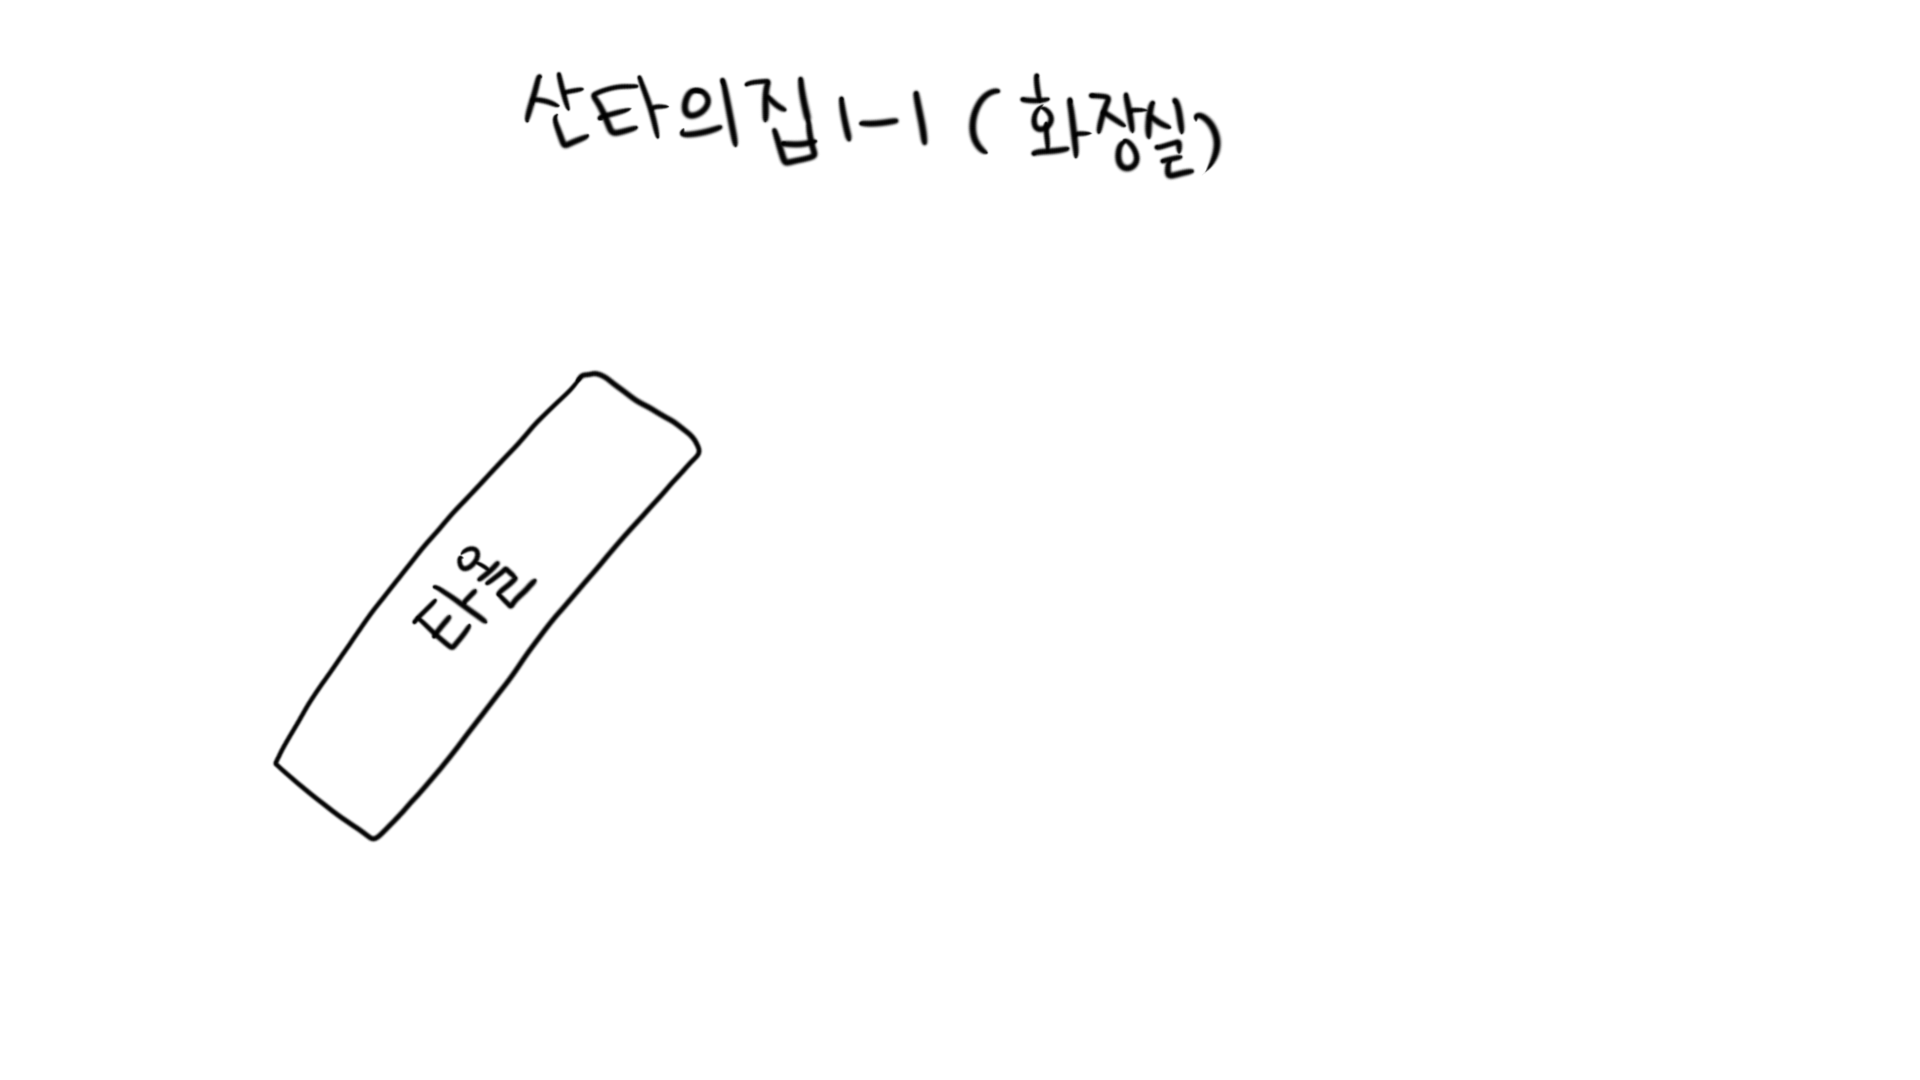 산타의집 1-1 (화장실)
타월